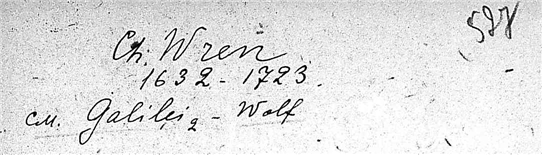 Ch. Wren
1632 - 1723.
см. Galilei₂ - Wolf